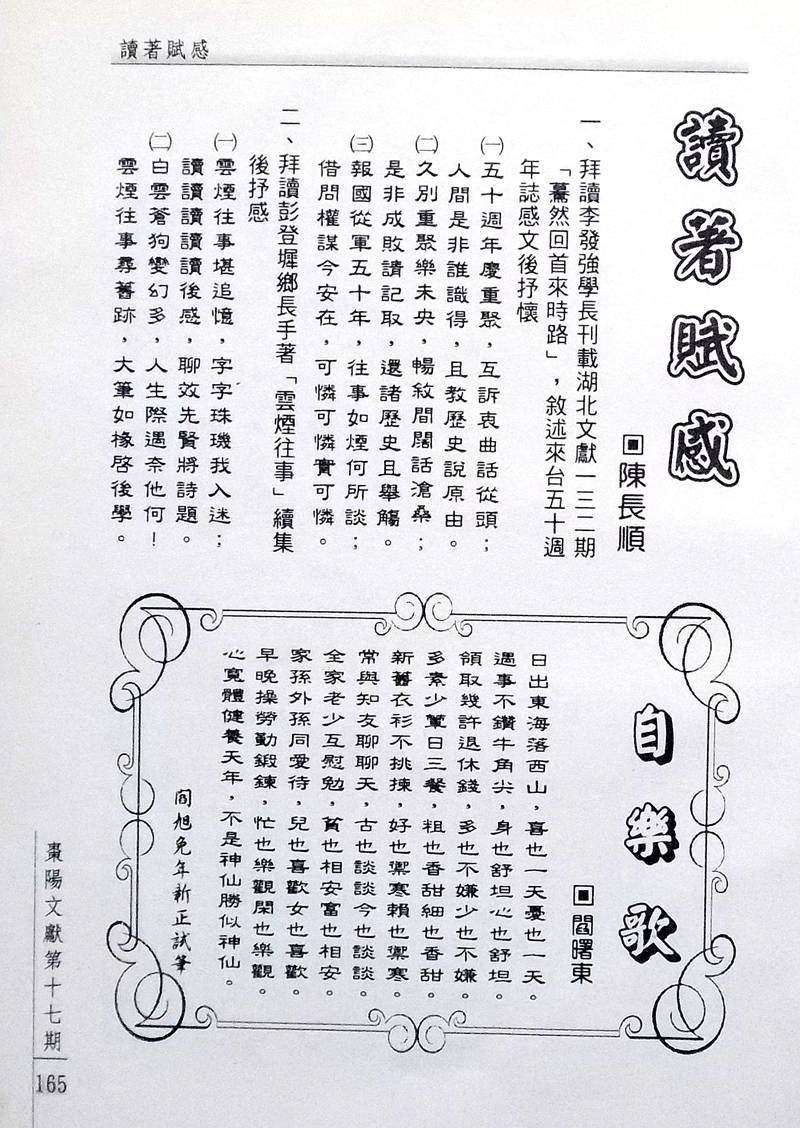 讀著賦感
讀著賦感
▣陳長順
一、拜讀李發強學長刊載湖北文獻一三二期
「驀然回首來時路」，敘述來台五十週
年誌感文後抒懷
㈠五十週年慶重聚，互訴衷曲話從頭；
人間是非誰識得，且教歷史說原由。
㈡久別重聚樂未央，暢敘間闊話滄桑；
是非成敗請記取，還諸歷史且舉觴。
㈢報國從軍五十年，往事如煙何所談；
借問權謀今安在，可憐可憐實可憐。
二、拜讀彭登墀鄉長手著「雲煙往事」續集
後抒感
㈠雲煙往事堪追憶，字字珠璣我入迷；
讀讀讀讀讀後感，聊效先賢將詩題。
㈡白雲蒼狗變幻多，人生際遇奈他何！
雲煙往事尋舊跡，大筆如椽啓後學。
自樂歌
▣閻曙東
日出東海落西山，喜也一天憂也一天。
遇事不鑽牛角尖，身也舒坦心也舒坦。
領取幾許退休錢，多也不嫌少也不嫌。
多素少葷日三餐，粗也香甜細也香甜。
新舊衣衫不挑揀，好也禦寒賴也禦寒。
常與知友聊聊天，古也談談今也談談。
全家老少互慰勉，貧也相安富也相安。
家孫外孫同愛待，兒也喜歡女也喜歡。
早晚操勞勤鍛鍊，忙也樂觀閑也樂觀。
心寬體健養天年，不是神仙勝似神仙。
旭兔年新正試筆
棗陽文獻第十七期
165